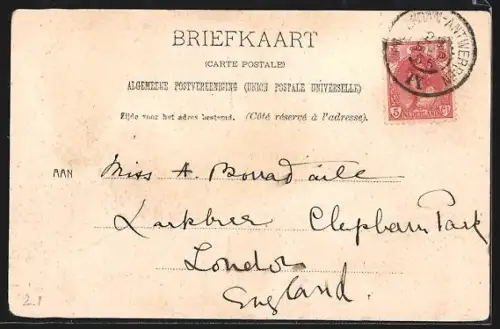 BRIEFKAART
(CARTE POSTALE)
ALGEMEENE POSTVEREENIGING (UNION POSTALE UNIVERSELLE)
Zijde voor het adres bestemd. (Côté réservé à l'adresse).
-ANTWERPEN
IV
5 NEDERLAND Ct
AAN Miss A. Borradaile
Clapham Park
London
England
2.1